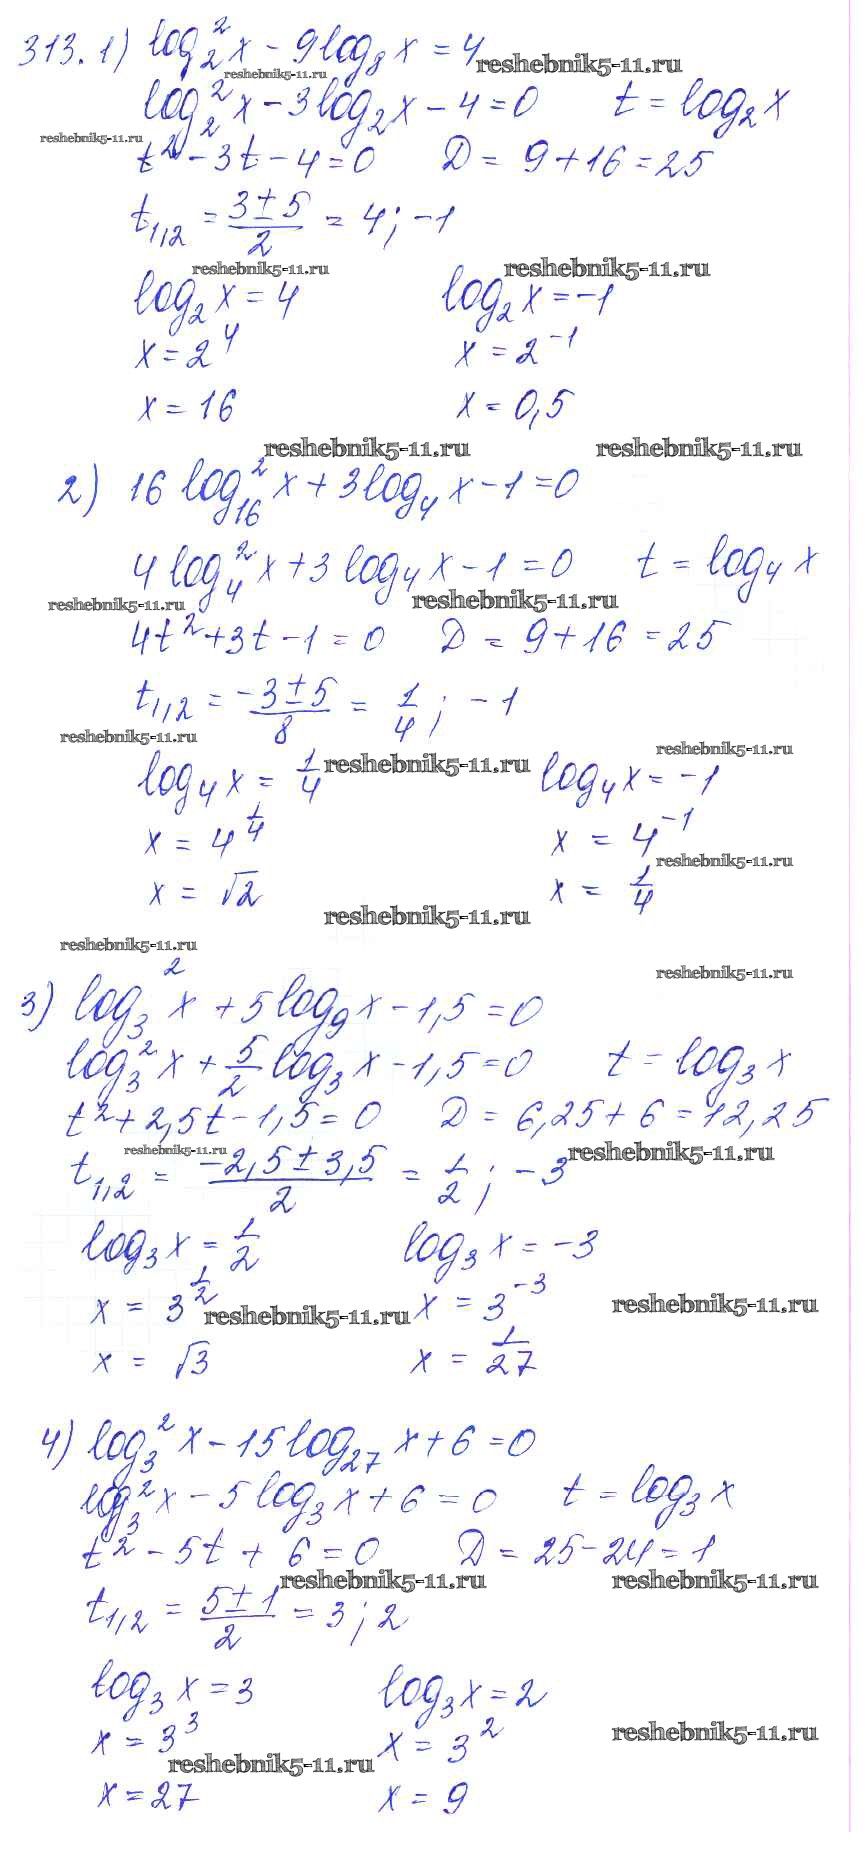 313. 1) log₂² x − 9 log₈ x = 4
reshebnik5-11.ru
reshebnik5-11.ru
log₂² x − 3 log₂ x − 4 = 0 t = log₂ x
reshebnik5-11.ru
t² − 3t − 4 = 0 D = 9 + 16 = 25
t₁,₂ = (3 ± 5)/2 = 4; −1
reshebnik5-11.ru reshebnik5-11.ru
log₂ x = 4 log₂ x = −1
x = 2⁴ x = 2⁻¹
x = 16 x = 0,5
reshebnik5-11.ru reshebnik5-11.ru
2) 16 log₁₆² x + 3 log₄ x − 1 = 0
4 log₄² x + 3 log₄ x − 1 = 0 t = log₄ x
reshebnik5-11.ru reshebnik5-11.ru
4t² + 3t − 1 = 0 D = 9 + 16 = 25
t₁,₂ = (−3 ± 5)/8 = 1/4; −1
reshebnik5-11.ru reshebnik5-11.ru
log₄ x = 1/4 log₄ x = −1
reshebnik5-11.ru
x = 4^(1/4) x = 4⁻¹
reshebnik5-11.ru
x = √2 x = 1/4
reshebnik5-11.ru
reshebnik5-11.ru reshebnik5-11.ru
3) log₃² x + 5 log₉ x − 1,5 = 0
log₃² x + 5/2 log₃ x − 1,5 = 0 t = log₃ x
t² + 2,5t − 1,5 = 0 D = 6,25 + 6 = 12,25
reshebnik5-11.ru reshebnik5-11.ru
t₁,₂ = (−2,5 ± 3,5)/2 = 1/2; −3
log₃ x = 1/2 log₃ x = −3
x = 3^(1/2) x = 3⁻³
reshebnik5-11.ru reshebnik5-11.ru
x = √3 x = 1/27
4) log₃² x − 15 log₂₇ x + 6 = 0
log₃² x − 5 log₃ x + 6 = 0 t = log₃ x
t² − 5t + 6 = 0 D = 25 − 24 = 1
reshebnik5-11.ru reshebnik5-11.ru
t₁,₂ = (5 ± 1)/2 = 3; 2
log₃ x = 3 log₃ x = 2
x = 3³ x = 3²
reshebnik5-11.ru reshebnik5-11.ru
x = 27 x = 9